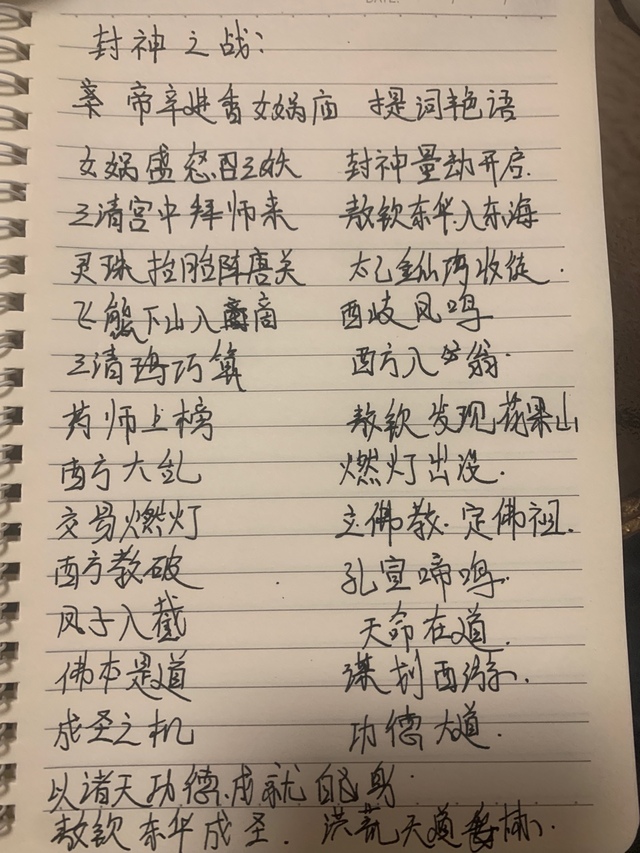 封神之战:
帝辛进香女娲庙 提词艳语
女娲盛怒召三妖 封神量劫开启.
三清宫中拜师来 敖钦东华入东海
灵珠投胎陈唐关 太乙金仙两收徒.
飞熊下山入商 西岐凤鸣
三清巧算 西方入瓮.
药师上榜 敖钦发现花果山
西方大乱 燃灯出没.
交易燃灯 立佛教.定佛祖.
西方教破 孔宣啼鸣.
凤子入截 天命在道.
佛本是道 谋划西游.
成圣之机 功德大道.
以诸天功德.成就自身.
敖钦东华成圣. 洪荒天道